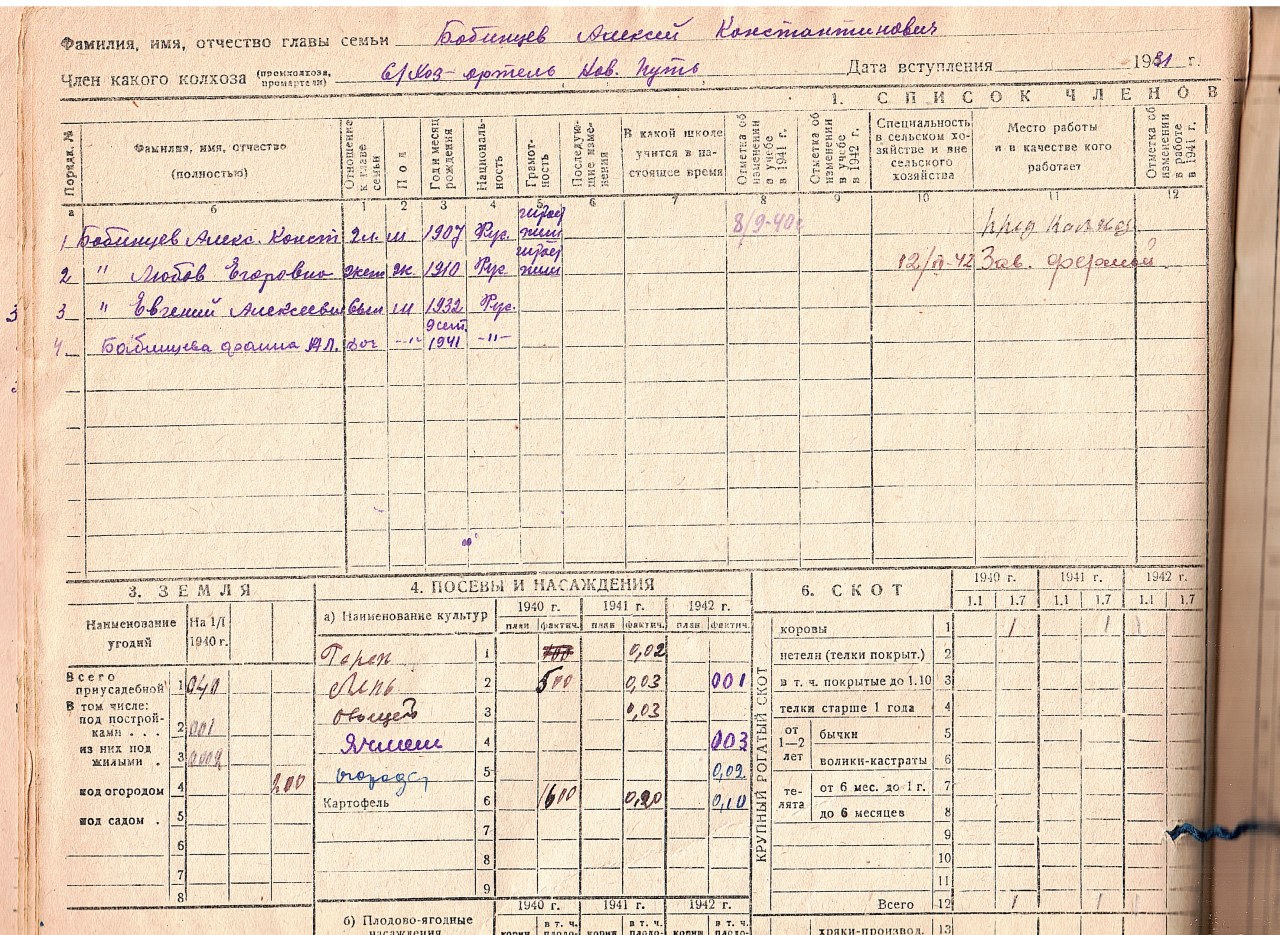 Фамилия, имя, отчество главы семьи Бобинцев Алексей Константинович
Член какого колхоза (промколхоза, промартели) С/Хоз-артель Нов. Путь Дата вступления 1931 г.
1. СПИСОК ЧЛЕНОВ
Порядк. № Фамилия, имя, отчество (полностью) Отношение к главе семьи Пол Год и месяц рождения Националь-ность Грамот-ность Последую-щие изме-нения В какой школе учится в на-стоящее время Отметка об изменении в учебе в 1941 г. Отметка об изменении в учебе в 1942 г. Специальность в сельском хо-зяйстве и вне сельского хозяйства Место работы и в качестве кого работает Отметка об изменении в работе в 1941 г.
а б 1 2 3 4 5 6 7 8 9 10 11 12
1 Бобинцев Алекс. Конст гл. м 1907 Рус. 8/9-40г пред колхоза
2 " Любов Егоровна жен ж. 1910 Рус 12/ -42 Зав. фермой
3 3 " Евгений Алексеевич сын м 1932 Рус.
4 Бобинцева Фаина Ал. доч -"- 9 сент. 1941 -"-
3. ЗЕМЛЯ
Наименование угодий На 1/I 1940 г.
Всего приусадебной 1 040
В том числе:
под построй-ками . . . 2 001
из них под жилыми . 3 0002
под огородом 4 200
под садом . 5
6
7
8
4. ПОСЕВЫ И НАСАЖДЕНИЯ
а) Наименование культур 1940 г. 1941 г. 1942 г.
план фактич. план фактич. план фактич.
Горох 1 0,02
Лень 2 500 0,03 001
Овощей 3 0,03
Ячмень 4 003
огородс 5 0,02
Картофель 6 1600 0,20 0,10
7
8
9
1940 г. 1941 г. 1942 г.
б) Плодово-ягодные насаждения
корни в т. ч. плодо- корни в т. ч. плодо- корни в т. ч. плодо-
6. СКОТ
1940 г. 1941 г. 1942 г.
1.1 1.7 1.1 1.7 1.1 1.7
КРУПНЫЙ РОГАТЫЙ СКОТ
коровы 1 1 1
нетели (телки покрыт.) 2
в т. ч. покрытые до 1.10 3
телки старше 1 года 4
от 1—2 лет бычки 5
волики-кастраты 6
те-лята от 6 мес. до 1 г. 7
до 6 месяцев 8
9
10
11
Всего 12 1 1
хряки-производ. 13